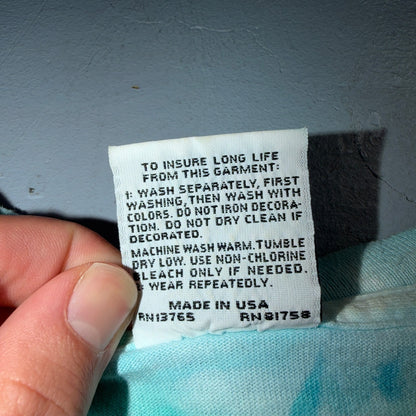 TO INSURE LONG LIFE
FROM THIS GARMENT:
1: WASH SEPARATELY, FIRST
WASHING, THEN WASH WITH
COLORS. DO NOT IRON DECORA-
TION. DO NOT DRY CLEAN IF
DECORATED.
MACHINE WASH WARM. TUMBLE
DRY LOW. USE NON-CHLORINE
BLEACH ONLY IF NEEDED.
WEAR REPEATEDLY.
MADE IN USA
RN13765 RN81758